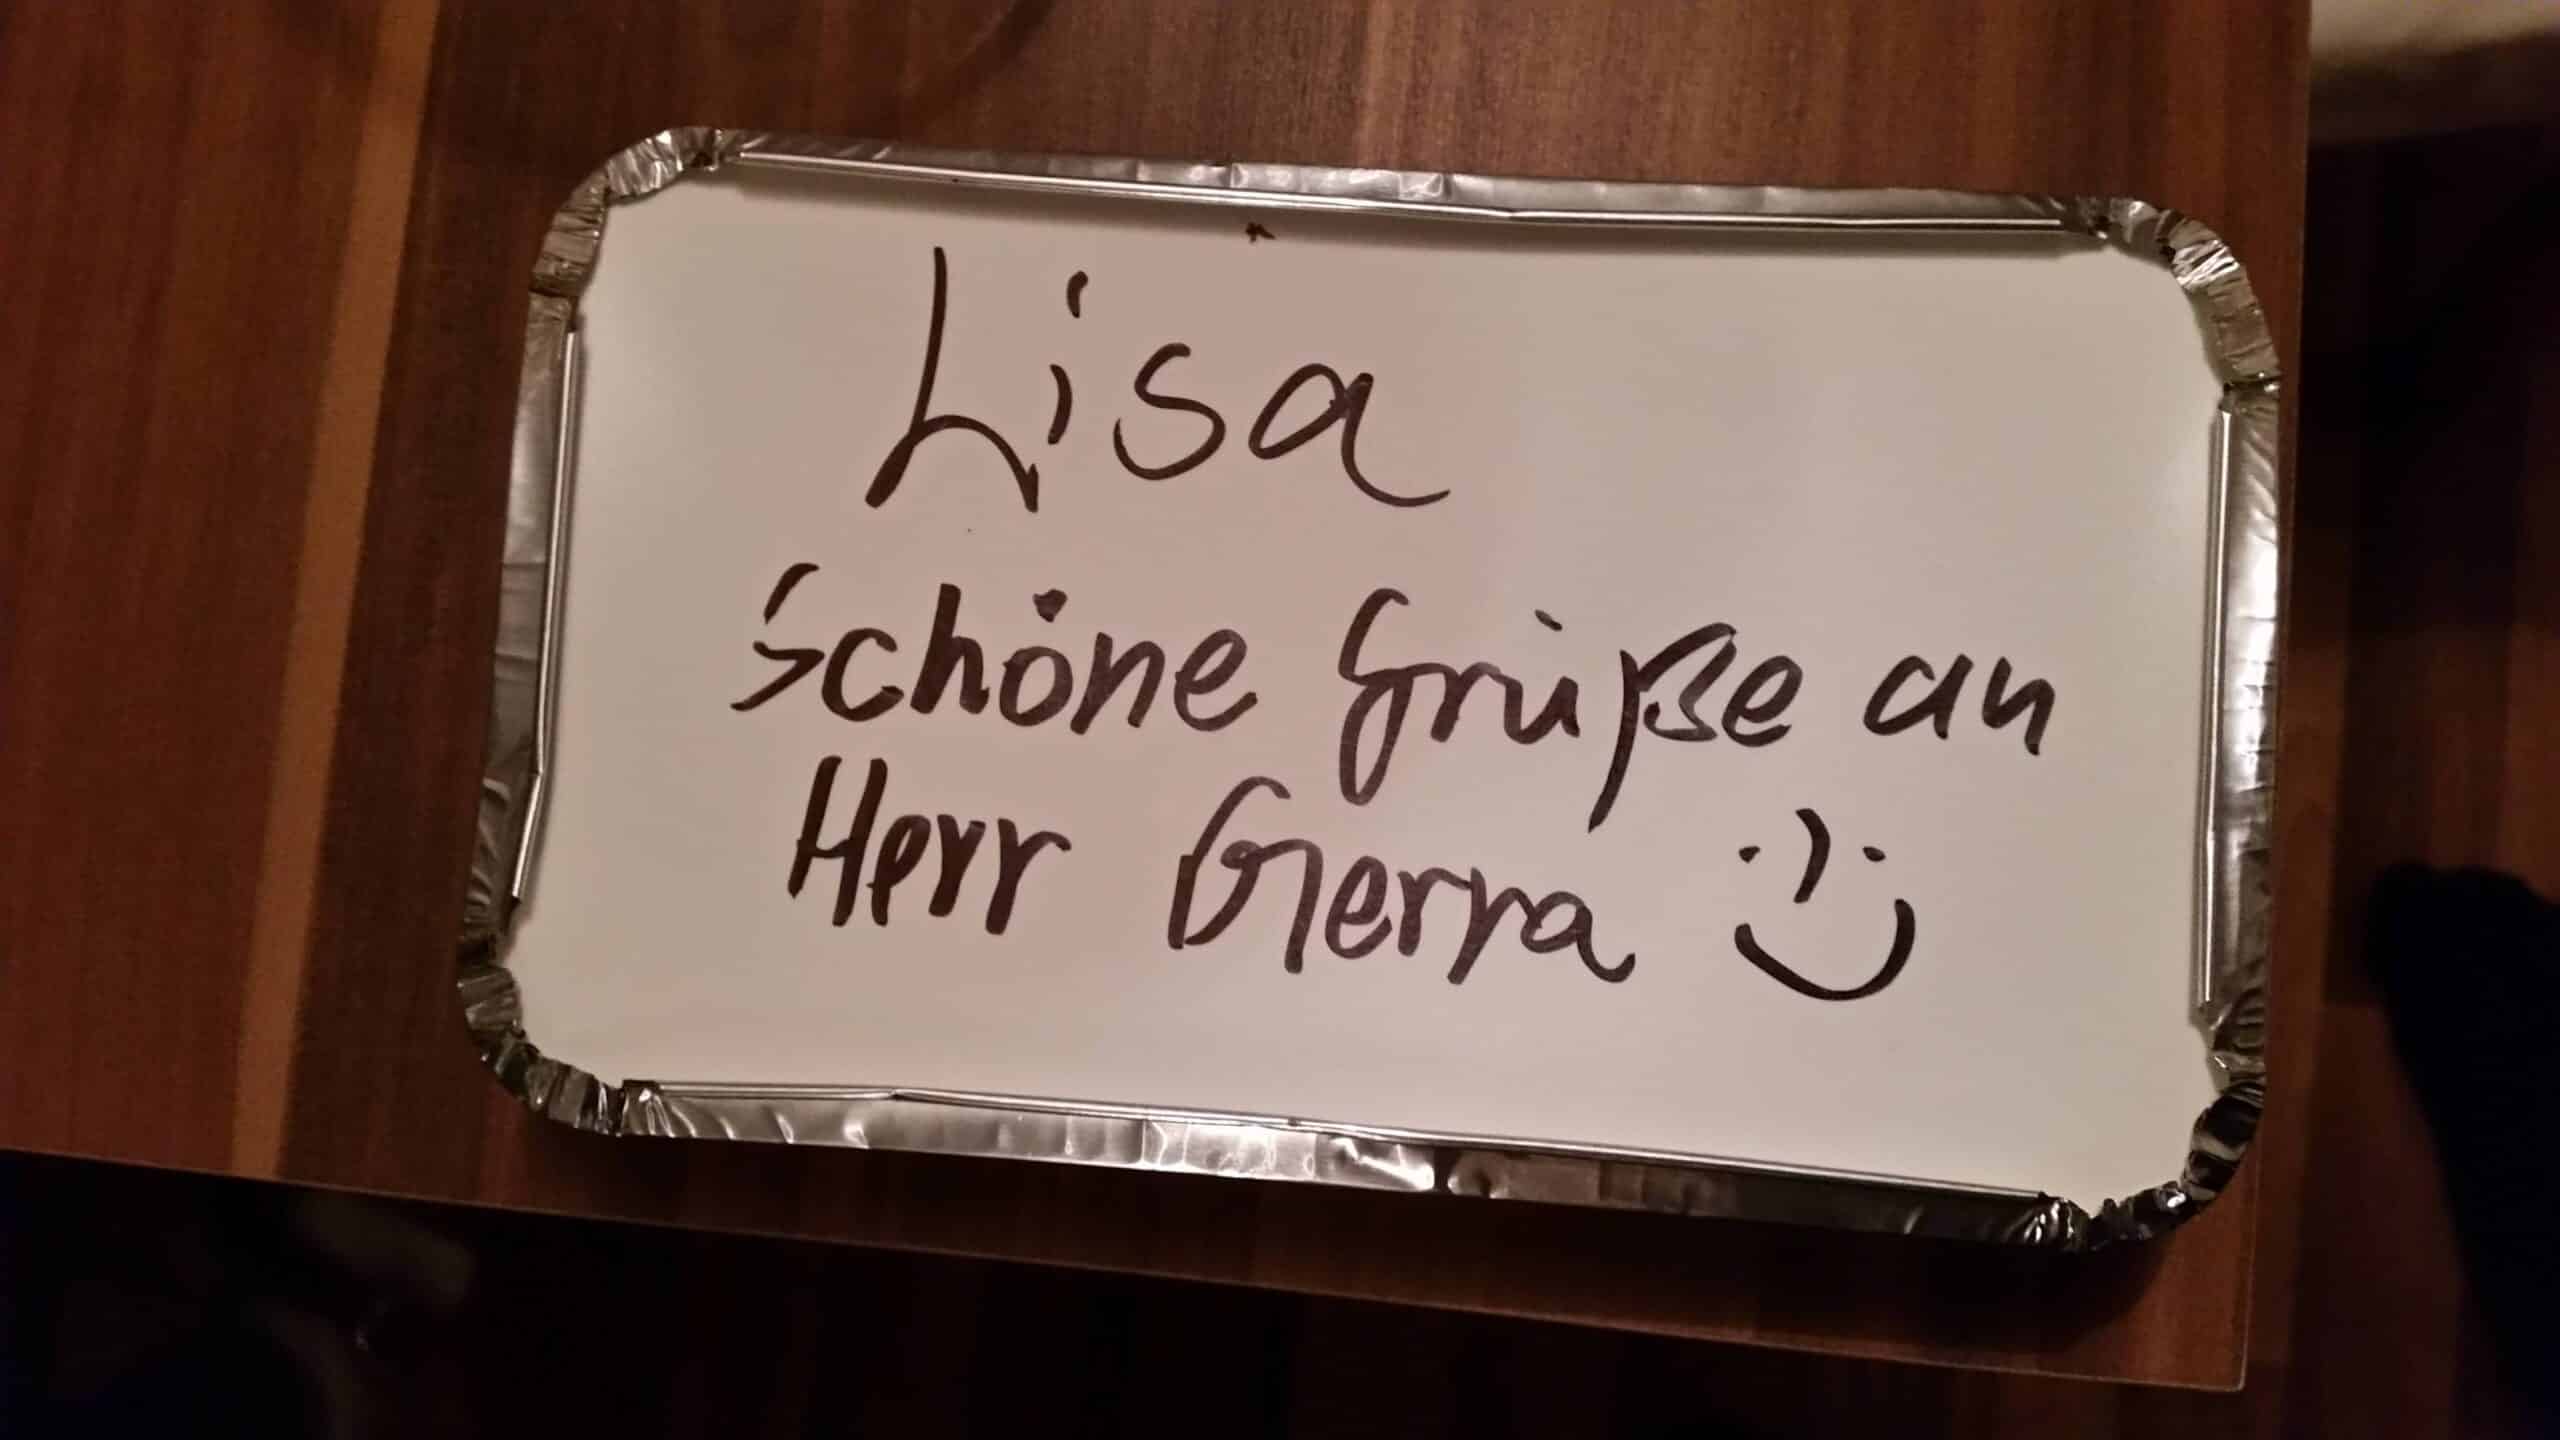 Lisa
Schöne Grüße an
Herr Gierra